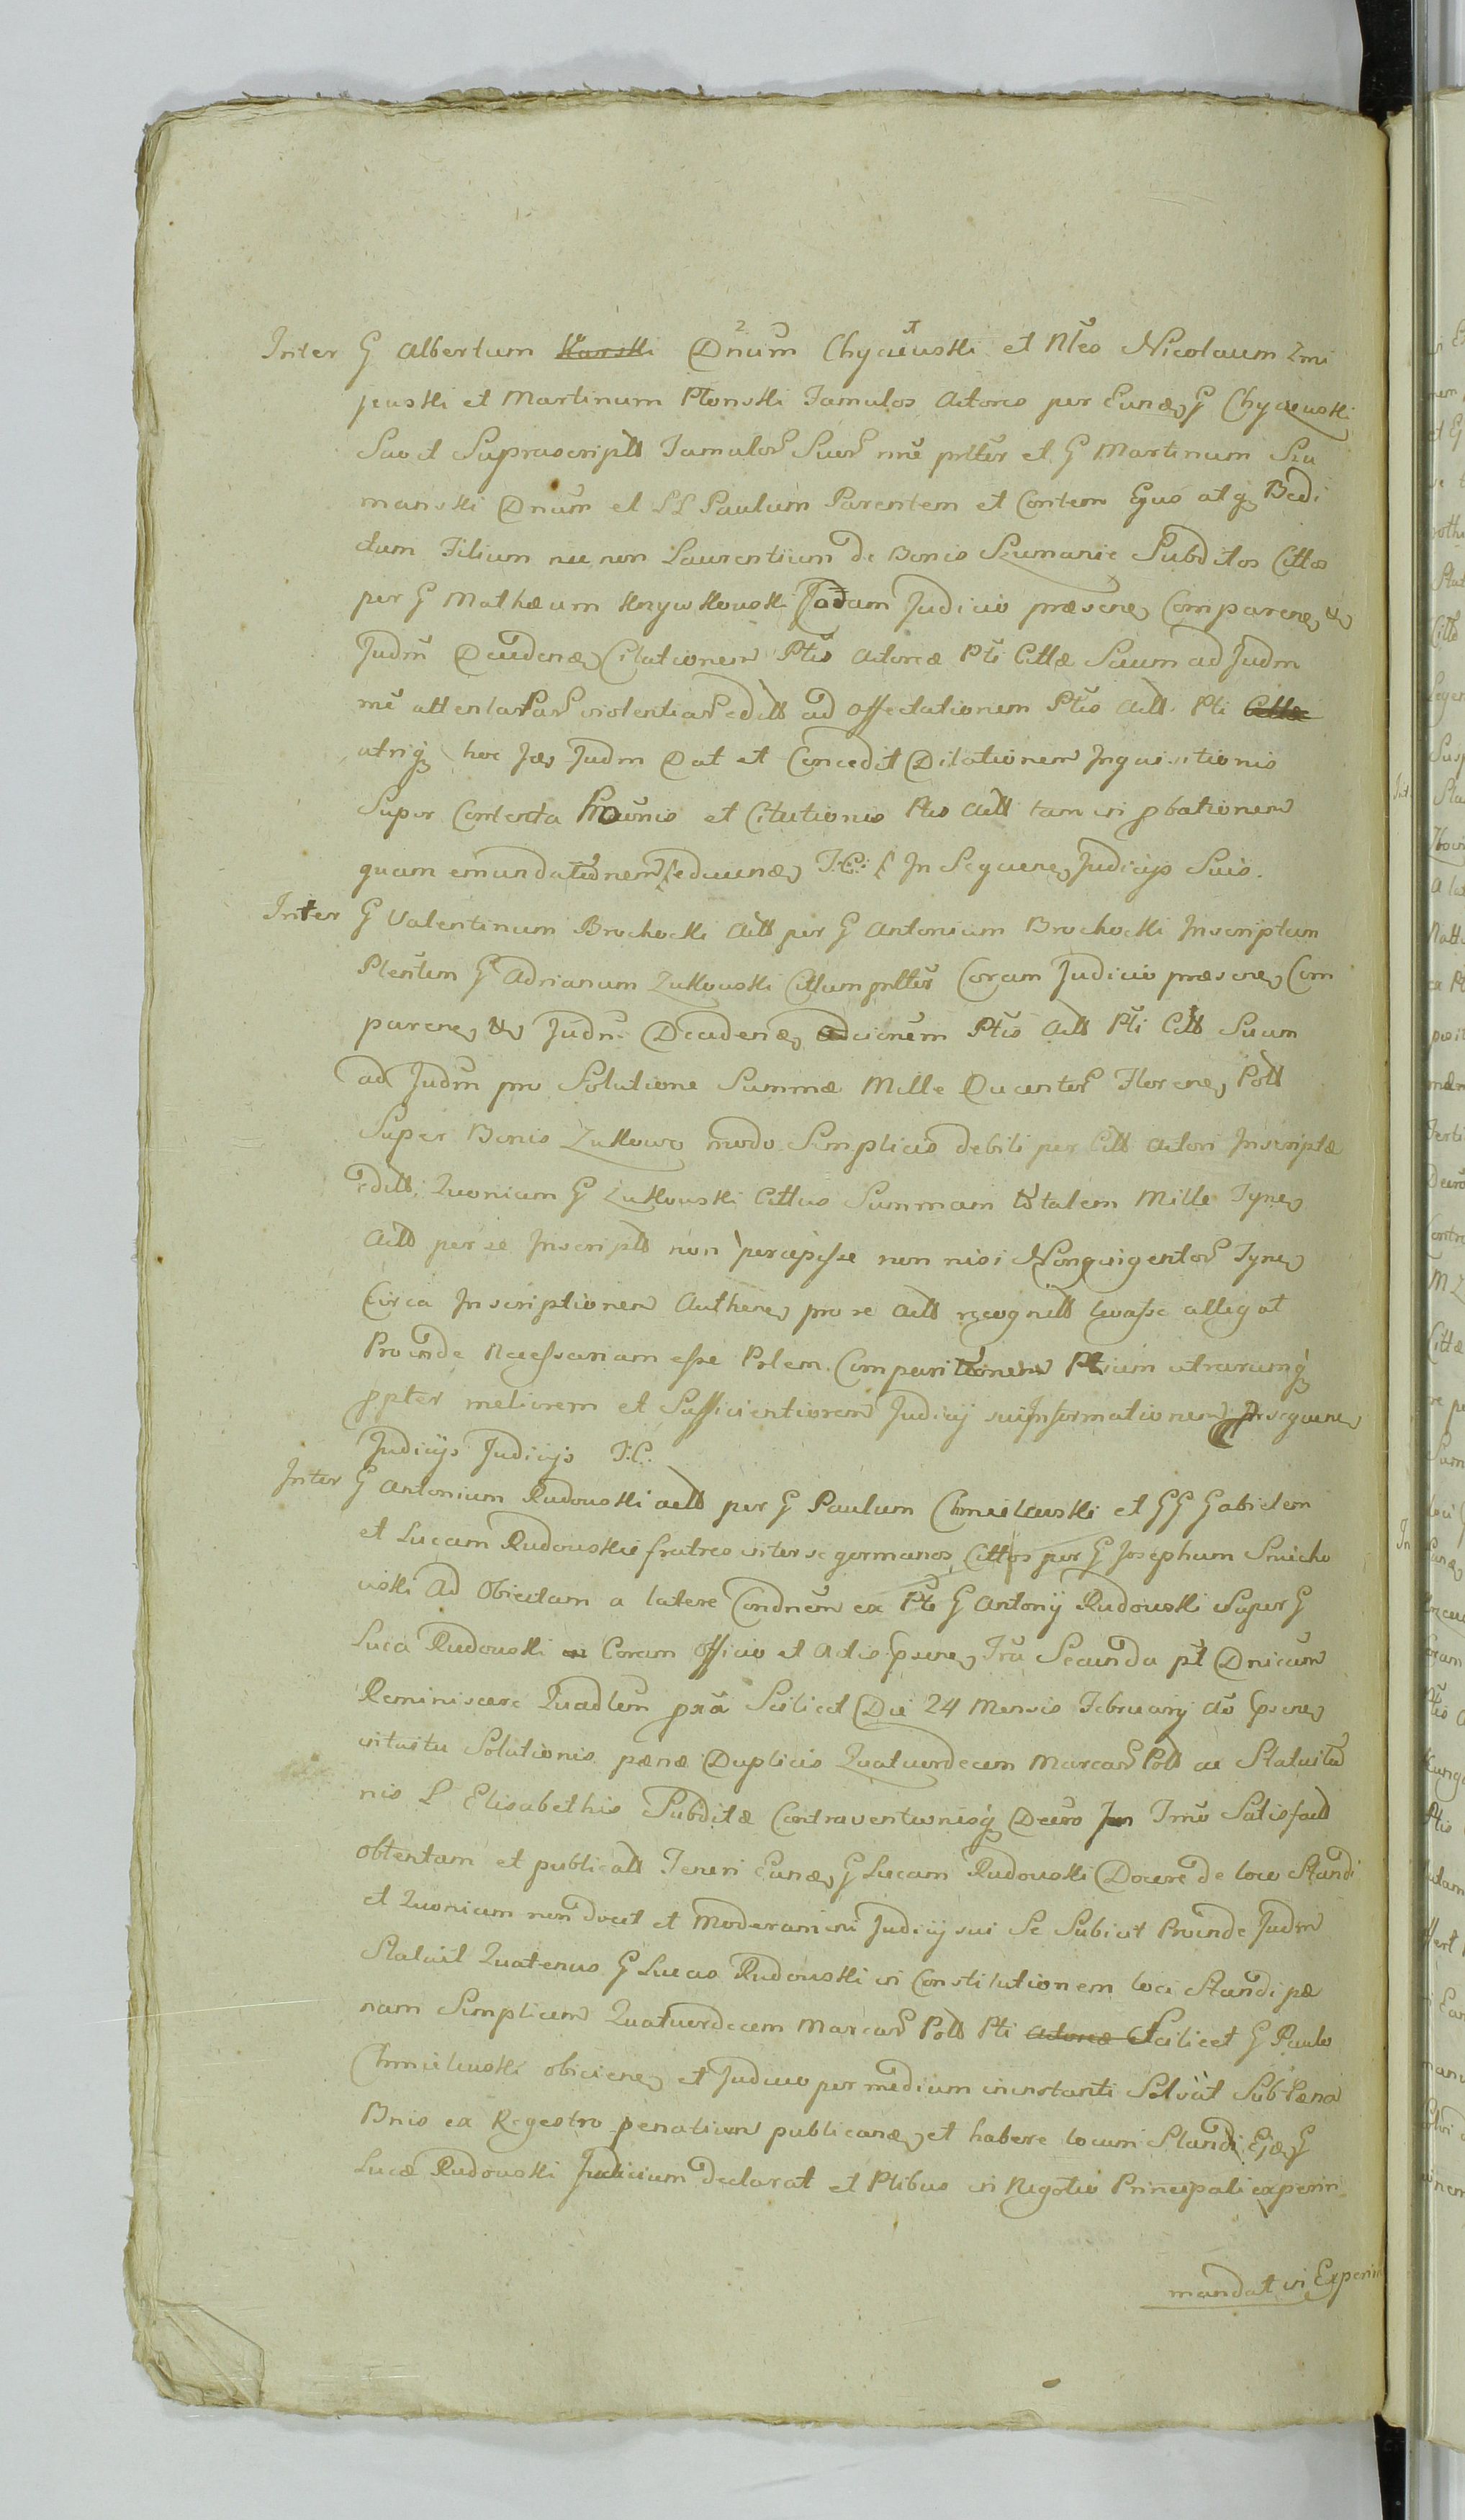 Inter G Albertum Karski Dnum Chyczewski et Nles Nicolaum Zmi
jewski et Martinum Plonski Famulos Actores per Eund G Chyczewski
Suo et Suprascripto Famulor Suor nne et G Martinum Szu
manski Dnum et LL Paulum Parentem et Contem Ejus atq Bedi
ctum Filium nec non Laurentium de Bonis Szumanie Subditos Cittos
per G Mathæum Krzywkowski Judicio præsene Comparene &
Judm Decidenæ Citationem Ptis Actoreæ Pti Cittæ Suum ad Judm
violentiar editt ad affectationem Ptis Actt Pti Cittæ
utriq hoc Judm Dat et Concedit Dilationem Inquisitionis
Super Contenta et Citationis Ptis Actt tam in pbationem
quam emundationem deducenæ T.C. In Sequene Judicijs Suis.
Inter G Valentinum Brochocki Actt per G Antonium Brochocki Inscriptum
Plentem G Adrianum Zukowski Cittum Coram Judicio præsene Com
parene & Judm Decidenæ Ptis Actt Pti Citt Suum
ad Judm pro Solutione Summæ Mille Ducentor Florene Poll
Super Bonis Zukowo modo Simplicis debiti per Citt Actori Inscriptæ
editt; Quoniam G Zukowski Cittus Summam totalem Mille Tyne
Actt per se Inscriptt non percepisse non nisi Nongwigentor Tyne
Circa Inscriptionem Authene pro se Actt recognitt levasse allegat
Proinde Necessariam esse Prlem Comparitionem Ptium utrarumq
ppter meliorem et Sufficientiorem Judicij sui Informationem In sequene
Judicijs Judicijs T.C.
Inter G Antonium Rudowski actt per G Paulum Chmielewski et GG Gabielem
et Lucam Rudowskie fratres inter se germanos Cittos per G Josephum Smicho
wski Ad Obiectam a latere Condnem ex Pte G Antonij Rudowski Super G
Luca Rudowski Coram Officio et Actis psene Fria Secunda pt Dnicum
Reminiscere Quadlem pxa Scilicet Die 24 Mensis February Ao psene
intuitu Solutionis pænæ Duplicis Quatuordecem Marcar Poll ac Statuitio
nis L Elisabethis Subditæ Contraventionisq Decro Imo Satisfact
obtentam et publicatt Teneri Eunæ G Lucam Rudowski Docere de loco Standi
et Quoniam non docet et Moderamini Judicij sui Se Subicit Proinde Judm
Statuit Quatenus G Lucas Rudowski in Constitutionem loci Standi pæ
nam Simplicem Quatuordecem Marcar Poll Pti Actoreæ Scilicet G Paulo
Chmielewski obiciene et Judicio per medium in instanti Solvat Sub Pæna
Bnis ex Regestro penalium publicanæ et habere locum Standi Ejæ G
Lucæ Rudowski Judicium declarat et Ptibus in Negotio Principali experiri
mandat in Experiri